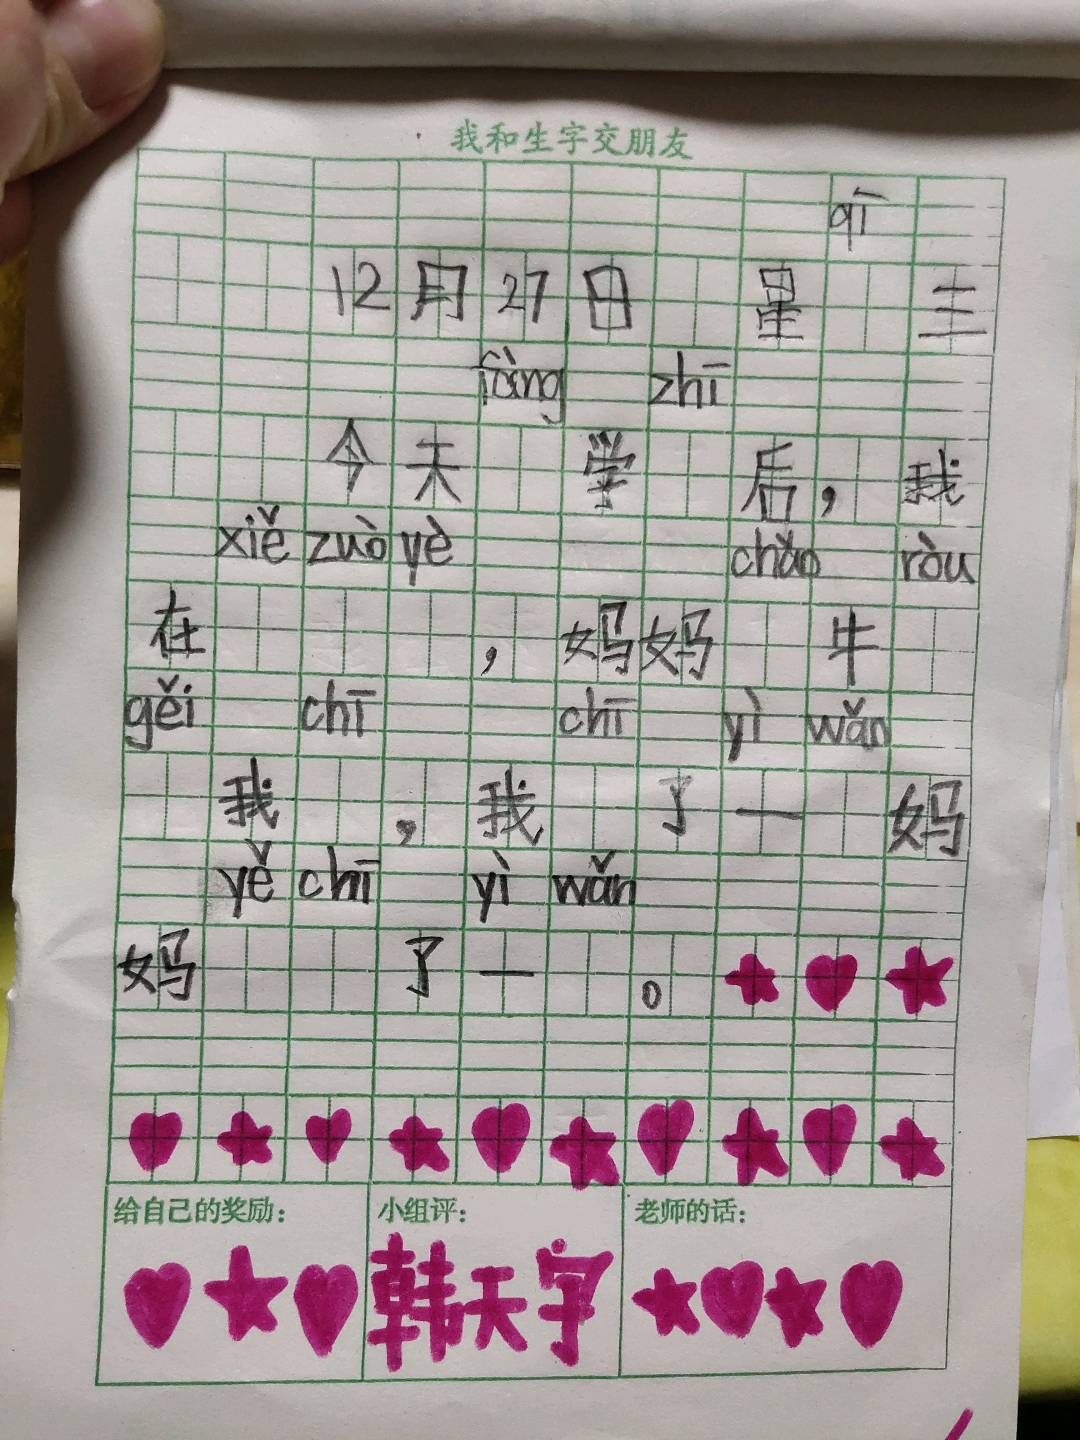 我和生字交朋友
qī
12月27日 星 三
fàng zhī
今天 学 后，我
xiě zuò yè chǎo ròu
在 ，妈妈 牛
gěi chī chī yì wǎn
我 ，我 了一 妈
yě chī yì wǎn
妈 了一 。
给自己的奖励： 小组评： 老师的话：
韩天宇